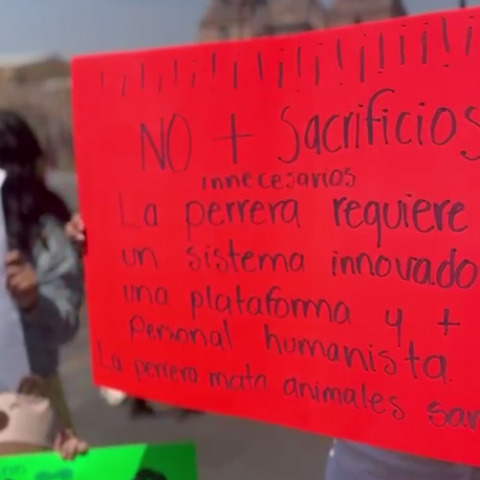 ¡¡¡¡¡¡¡¡¡¡!!!!!!
NO + Sacrificios
innecesarios
La perrera requiere
un sistema innovado
una plataforma y +
personal humanista.
La perrera mata animales san